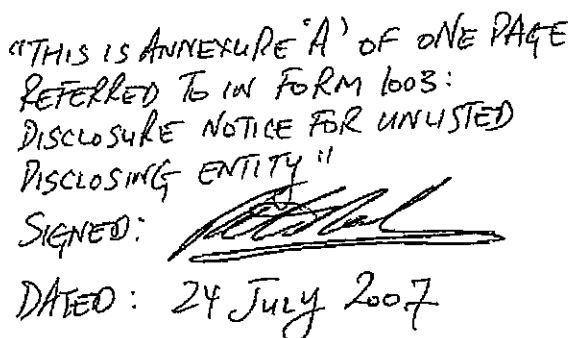 "THIS IS ANNEXURE 'A' OF ONE PAGE
REFERRED TO IN FORM 1003:
DISCLOSURE NOTICE FOR UNLISTED
DISCLOSING ENTITY"
SIGNED:
DATED: 24 July 2007